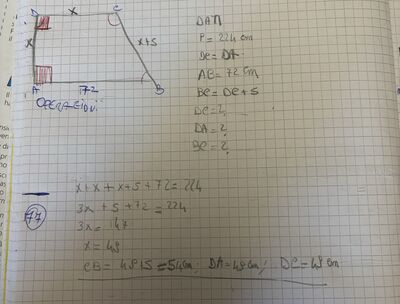 D x C
x x+5
A 72 B
OPERAZIONI
DATI
P = 224 cm
DC = DA
AB = 72 cm
BC = DC + 5
DC = ?
DA = ?
BC = ?
x + x + x + 5 + 72 = 224
3x + 5 + 72 = 224
77
3x = 147
x = 49
CB = 49 + 5 = 54 cm; DA = 49 cm; DC = 49 cm